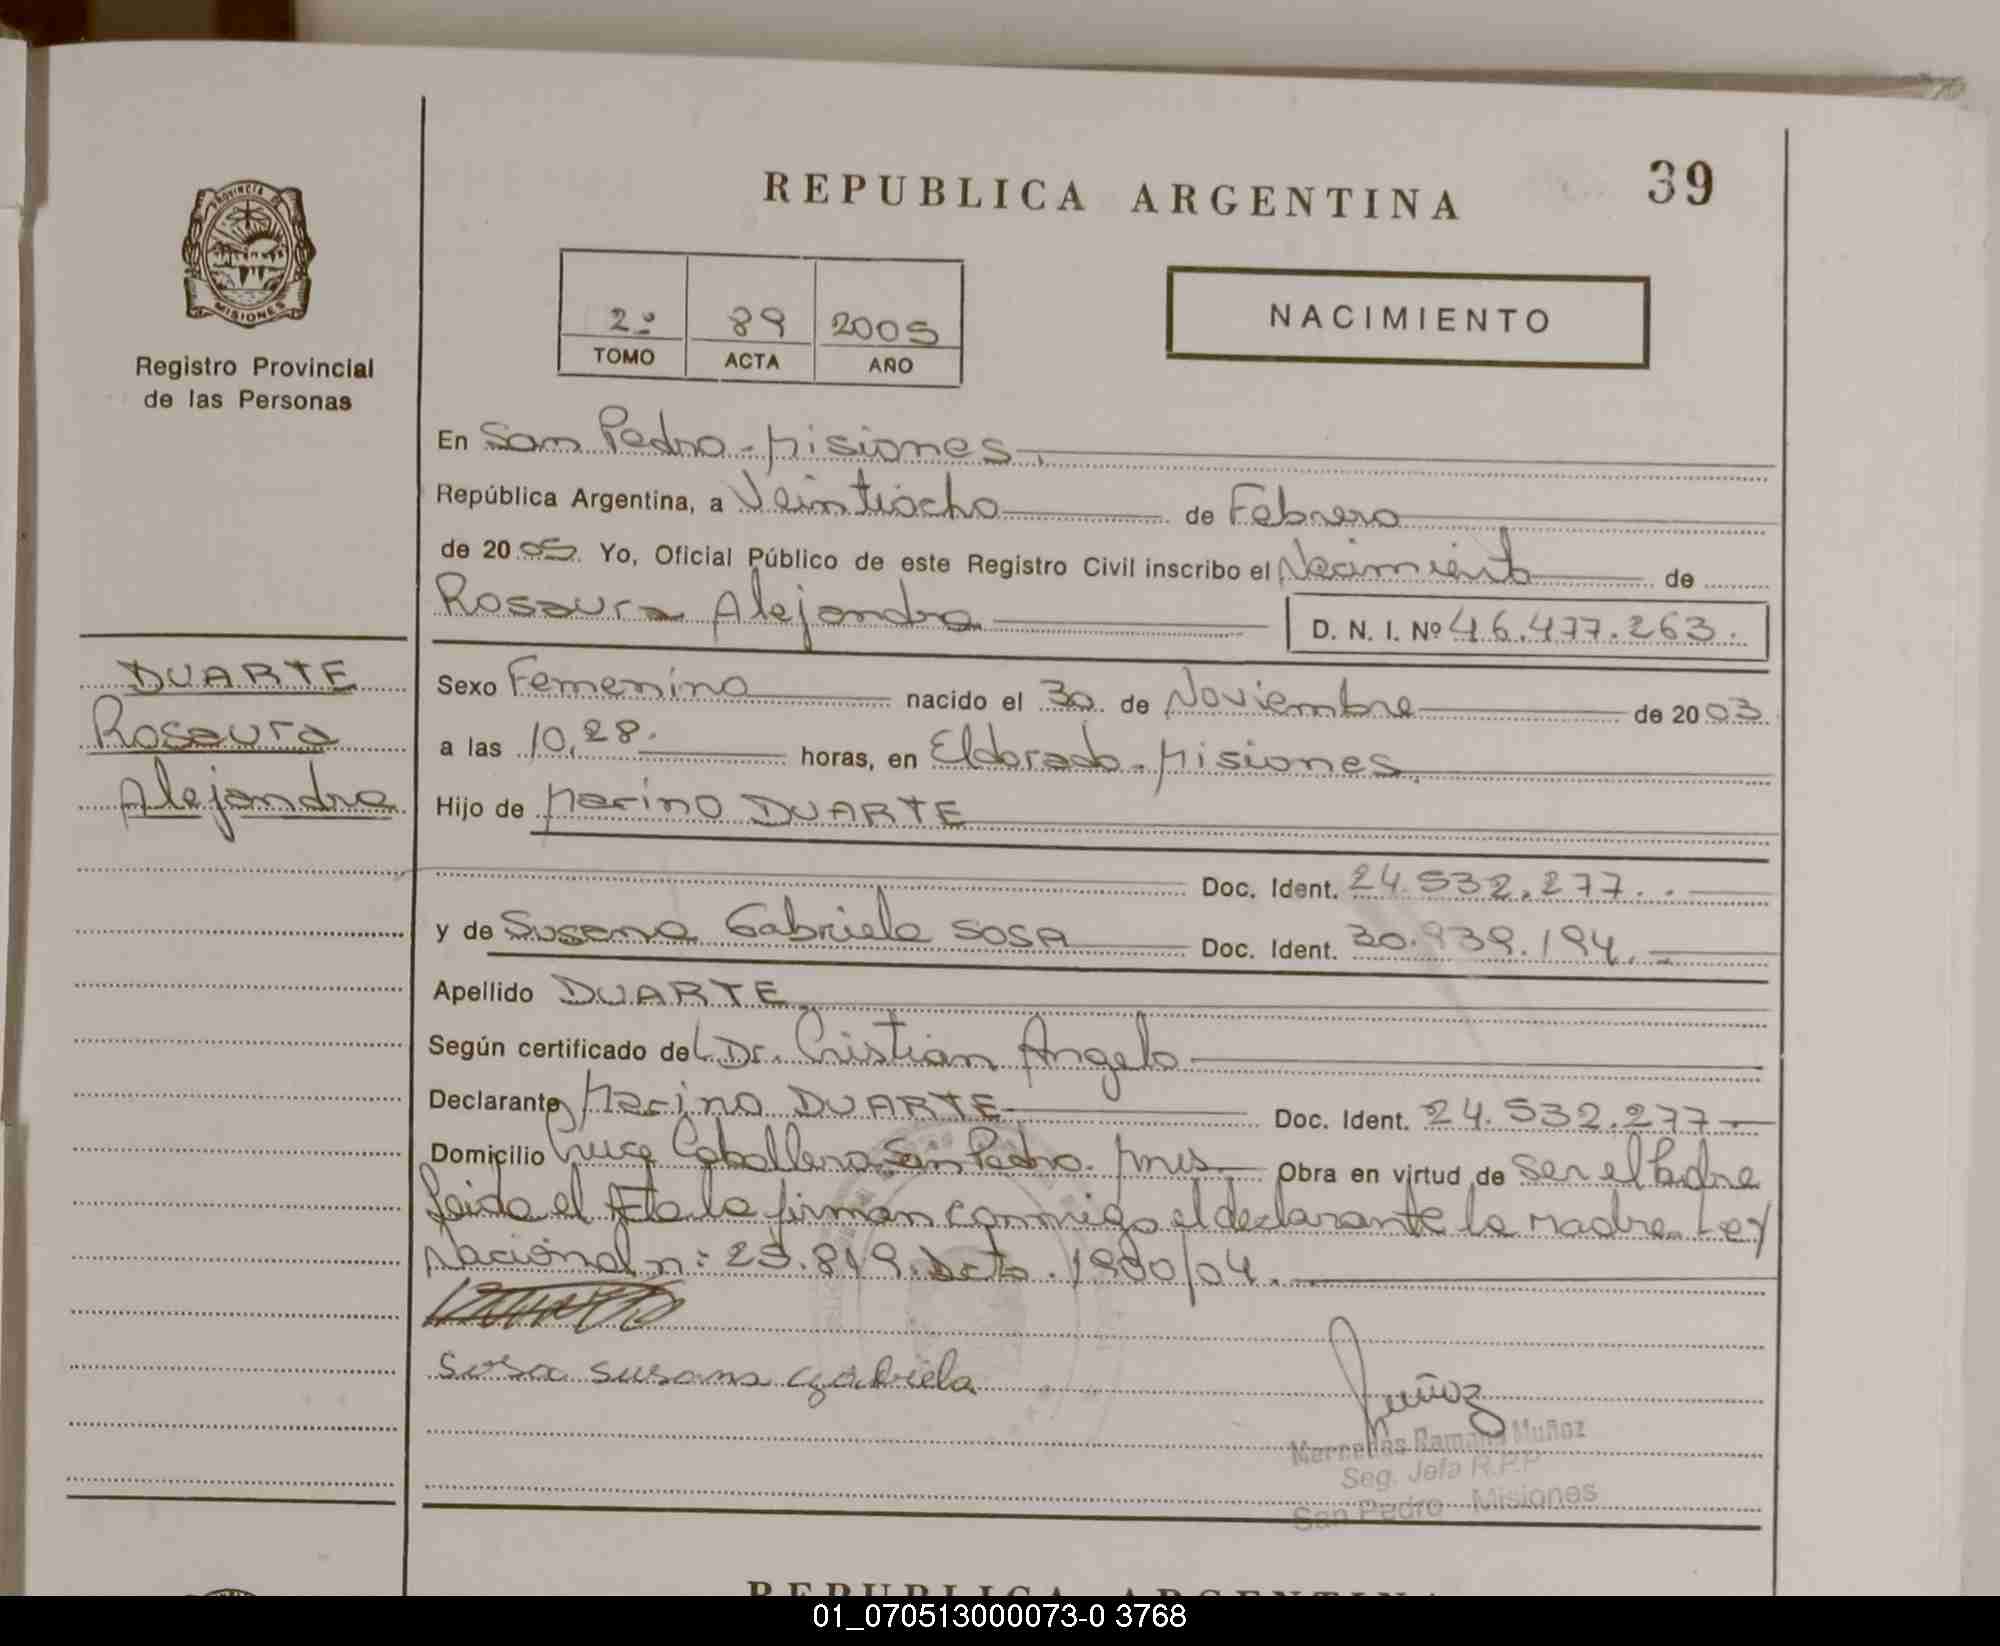 REPUBLICA ARGENTINA
39
PROVINCIA DE
MISIONES
Registro Provincial
de las Personas
2º 89 2005
TOMO ACTA AÑO
NACIMIENTO
En San Pedro - Misiones.
República Argentina, a Veintiocho de Febrero
de 20 05. Yo, Oficial Público de este Registro Civil inscribo el Nacimiento de
Rosaura Alejandra D. N. I. Nº 46.477.263.
DUARTE
Rosaura
Alejandra
Sexo Femenino nacido el 30 de Noviembre de 20 03
a las 10,28. horas, en Eldorado - Misiones.
Hijo de Marino DUARTE
Doc. Ident. 24.532.277..
y de Susana Gabriela SOSA Doc. Ident. 30.939.194.-
Apellido DUARTE
Según certificado del Dr. Cristian Angelo
Declarante Marino DUARTE Doc. Ident. 24.532.277.-
Domicilio Cruce Caballero San Pedro. Mnes. Obra en virtud de Ser el Padre
Leida el Acta la firman conmigo el declarante la madre. Ley
Nacional n: 25.819. Dcto. 1900/04.
Sosa susana gabriela
Muñoz
Mercedes Ramona Muñoz
Seg. Jefa R.P.P
San Pedro - Misiones
REPUBLICA ARGENTINA
01_070513000073-0 3768